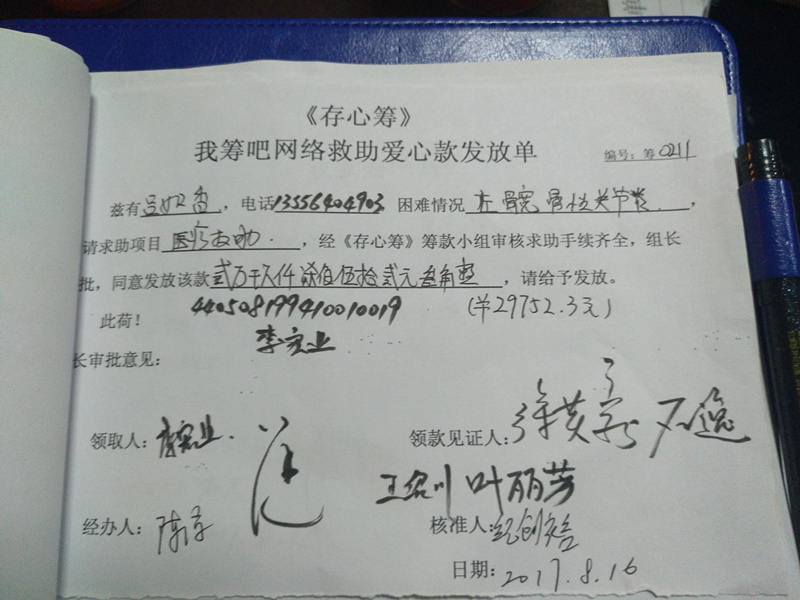 《存心筹》
我筹吧网络救助爱心款发放单 编号：筹0211
兹有吕如香，电话13556404903 困难情况左髋骨性关节炎，
请求助项目医疗救助，经《存心筹》筹款小组审核求助手续齐全，组长
批，同意发放该款贰万玖仟柒佰伍拾贰元叁角整，请给予发放。
此荷！ 440508199410010019 （￥29752.3元）
李宏业
长审批意见：
领取人：李宏业 领款见证人：
叶丽芳
经办人： 核准人：
日期：2017.8.16